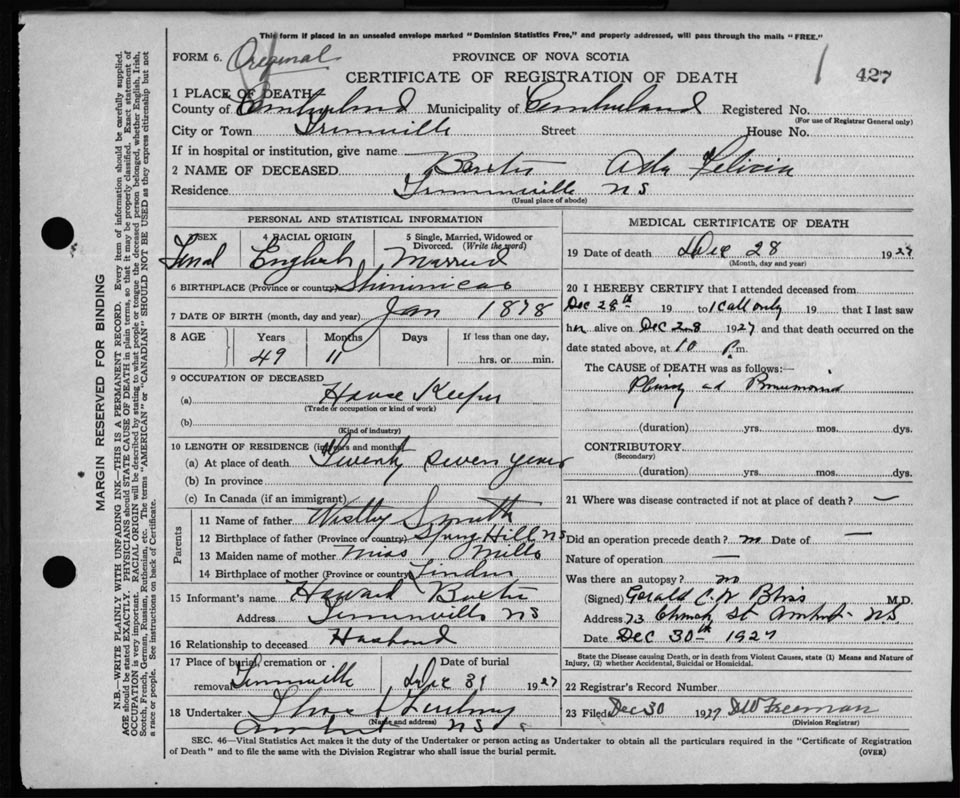 This form if placed in an unsealed envelope marked "Dominion Statistics Free," and properly addressed, will pass through the mails "FREE."
FORM 6. Original PROVINCE OF NOVA SCOTIA
CERTIFICATE OF REGISTRATION OF DEATH 1 427
1 PLACE OF DEATH
County of Cumberland Municipality of Cumberland Registered No.
(For use of Registrar General only)
City or Town Street House No.
If in hospital or institution, give name
2 NAME OF DECEASED Baxter Ada Felicia
Residence N S
(Usual place of abode)
PERSONAL AND STATISTICAL INFORMATION
3 SEX 4 RACIAL ORIGIN 5 Single, Married, Widowed or Divorced. (Write the word)
English Married
6 BIRTHPLACE (Province or country) Shinimicas
7 DATE OF BIRTH (month, day and year) Jan 1878
8 AGE Years Months Days If less than one day,
49 11 hrs. or min.
9 OCCUPATION OF DECEASED
(a) House Keeper
(Trade or occupation or kind of work)
(b)
(Kind of industry)
10 LENGTH OF RESIDENCE (in years and months)
(a) At place of death Twenty seven years
(b) In province
(c) In Canada (if an immigrant)
Parents
11 Name of father Smith
12 Birthplace of father (Province or country) Spring Hill NS
13 Maiden name of mother Miss Mills
14 Birthplace of mother (Province or country) Linden
15 Informant's name Howard Baxter
Address NS
16 Relationship to deceased Husband
17 Place of burial, cremation or removal Date of burial
Dec 31 1927
18 Undertaker
(Name and address)
Amherst N S
MEDICAL CERTIFICATE OF DEATH
19 Date of death Dec 28 1927
(Month, day and year)
20 I HEREBY CERTIFY that I attended deceased from
Dec 28th 19 to 1 call only 19 that I last saw
her alive on Dec 28 1927 and that death occurred on the
date stated above, at 10 P m.
The CAUSE of DEATH was as follows:—
(duration) yrs. mos. dys.
CONTRIBUTORY
(Secondary)
(duration) yrs. mos. dys.
21 Where was disease contracted if not at place of death? —
Did an operation precede death? no Date of —
Nature of operation —
Was there an autopsy? no
(Signed) Gerald C. W Bliss M.D.
Address 73 Church St Amherst NS
Date Dec 30th 1927
State the Disease causing Death, or in death from Violent Causes, state (1) Means and Nature of Injury, (2) whether Accidental, Suicidal or Homicidal.
22 Registrar's Record Number
23 Filed Dec 30 1927 Freeman
(Division Registrar)
SEC. 46—Vital Statistics Act makes it the duty of the Undertaker or person acting as Undertaker to obtain all the particulars required in the "Certificate of Registration
of Death" and to file the same with the Division Registrar who shall issue the burial permit. (OVER)
MARGIN RESERVED FOR BINDING
N.B.—WRITE PLAINLY WITH UNFADING INK—THIS IS A PERMANENT RECORD. Every item of information should be carefully supplied.
AGE should be stated EXACTLY. PHYSICIANS should STATE CAUSE OF DEATH in plain terms, so that it may be properly classified. Exact statement of
OCCUPATION is very important. RACIAL ORIGIN will be described by stating to what people or tongue the deceased person belonged, whether English, Irish,
Scotch, French, German, Russian, Ruthenian, etc. The terms "AMERICAN" or "CANADIAN" SHOULD NOT BE USED as they express citizenship but not
a race or people. See instructions on back of Certificate.